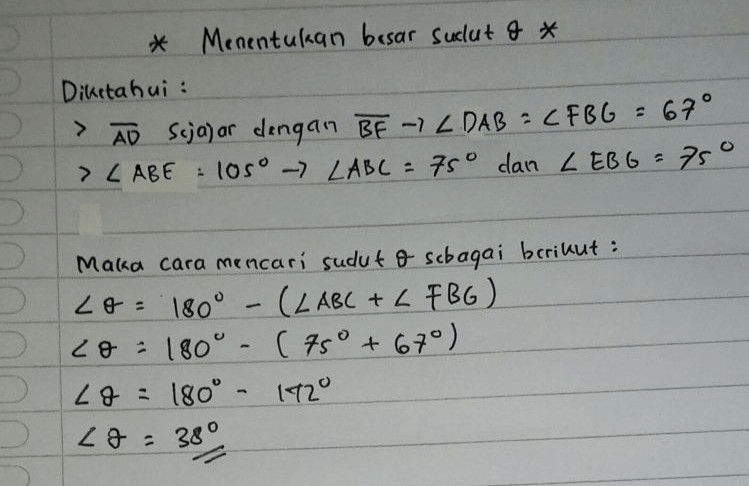 * Menentukan besar sudut θ *
Diketahui :
> A̅D̅ sejajar dengan B̅F̅ → ∠ DAB = ∠ FBG = 67°
> ∠ ABE = 105° → ∠ABC = 75° dan ∠ EBG = 75°
Maka cara mencari sudut θ sebagai berikut :
∠θ = 180° - (∠ABC + ∠ FBG)
∠θ = 180° - ( 75° + 67°)
∠θ = 180° - 142°
∠θ = 38°